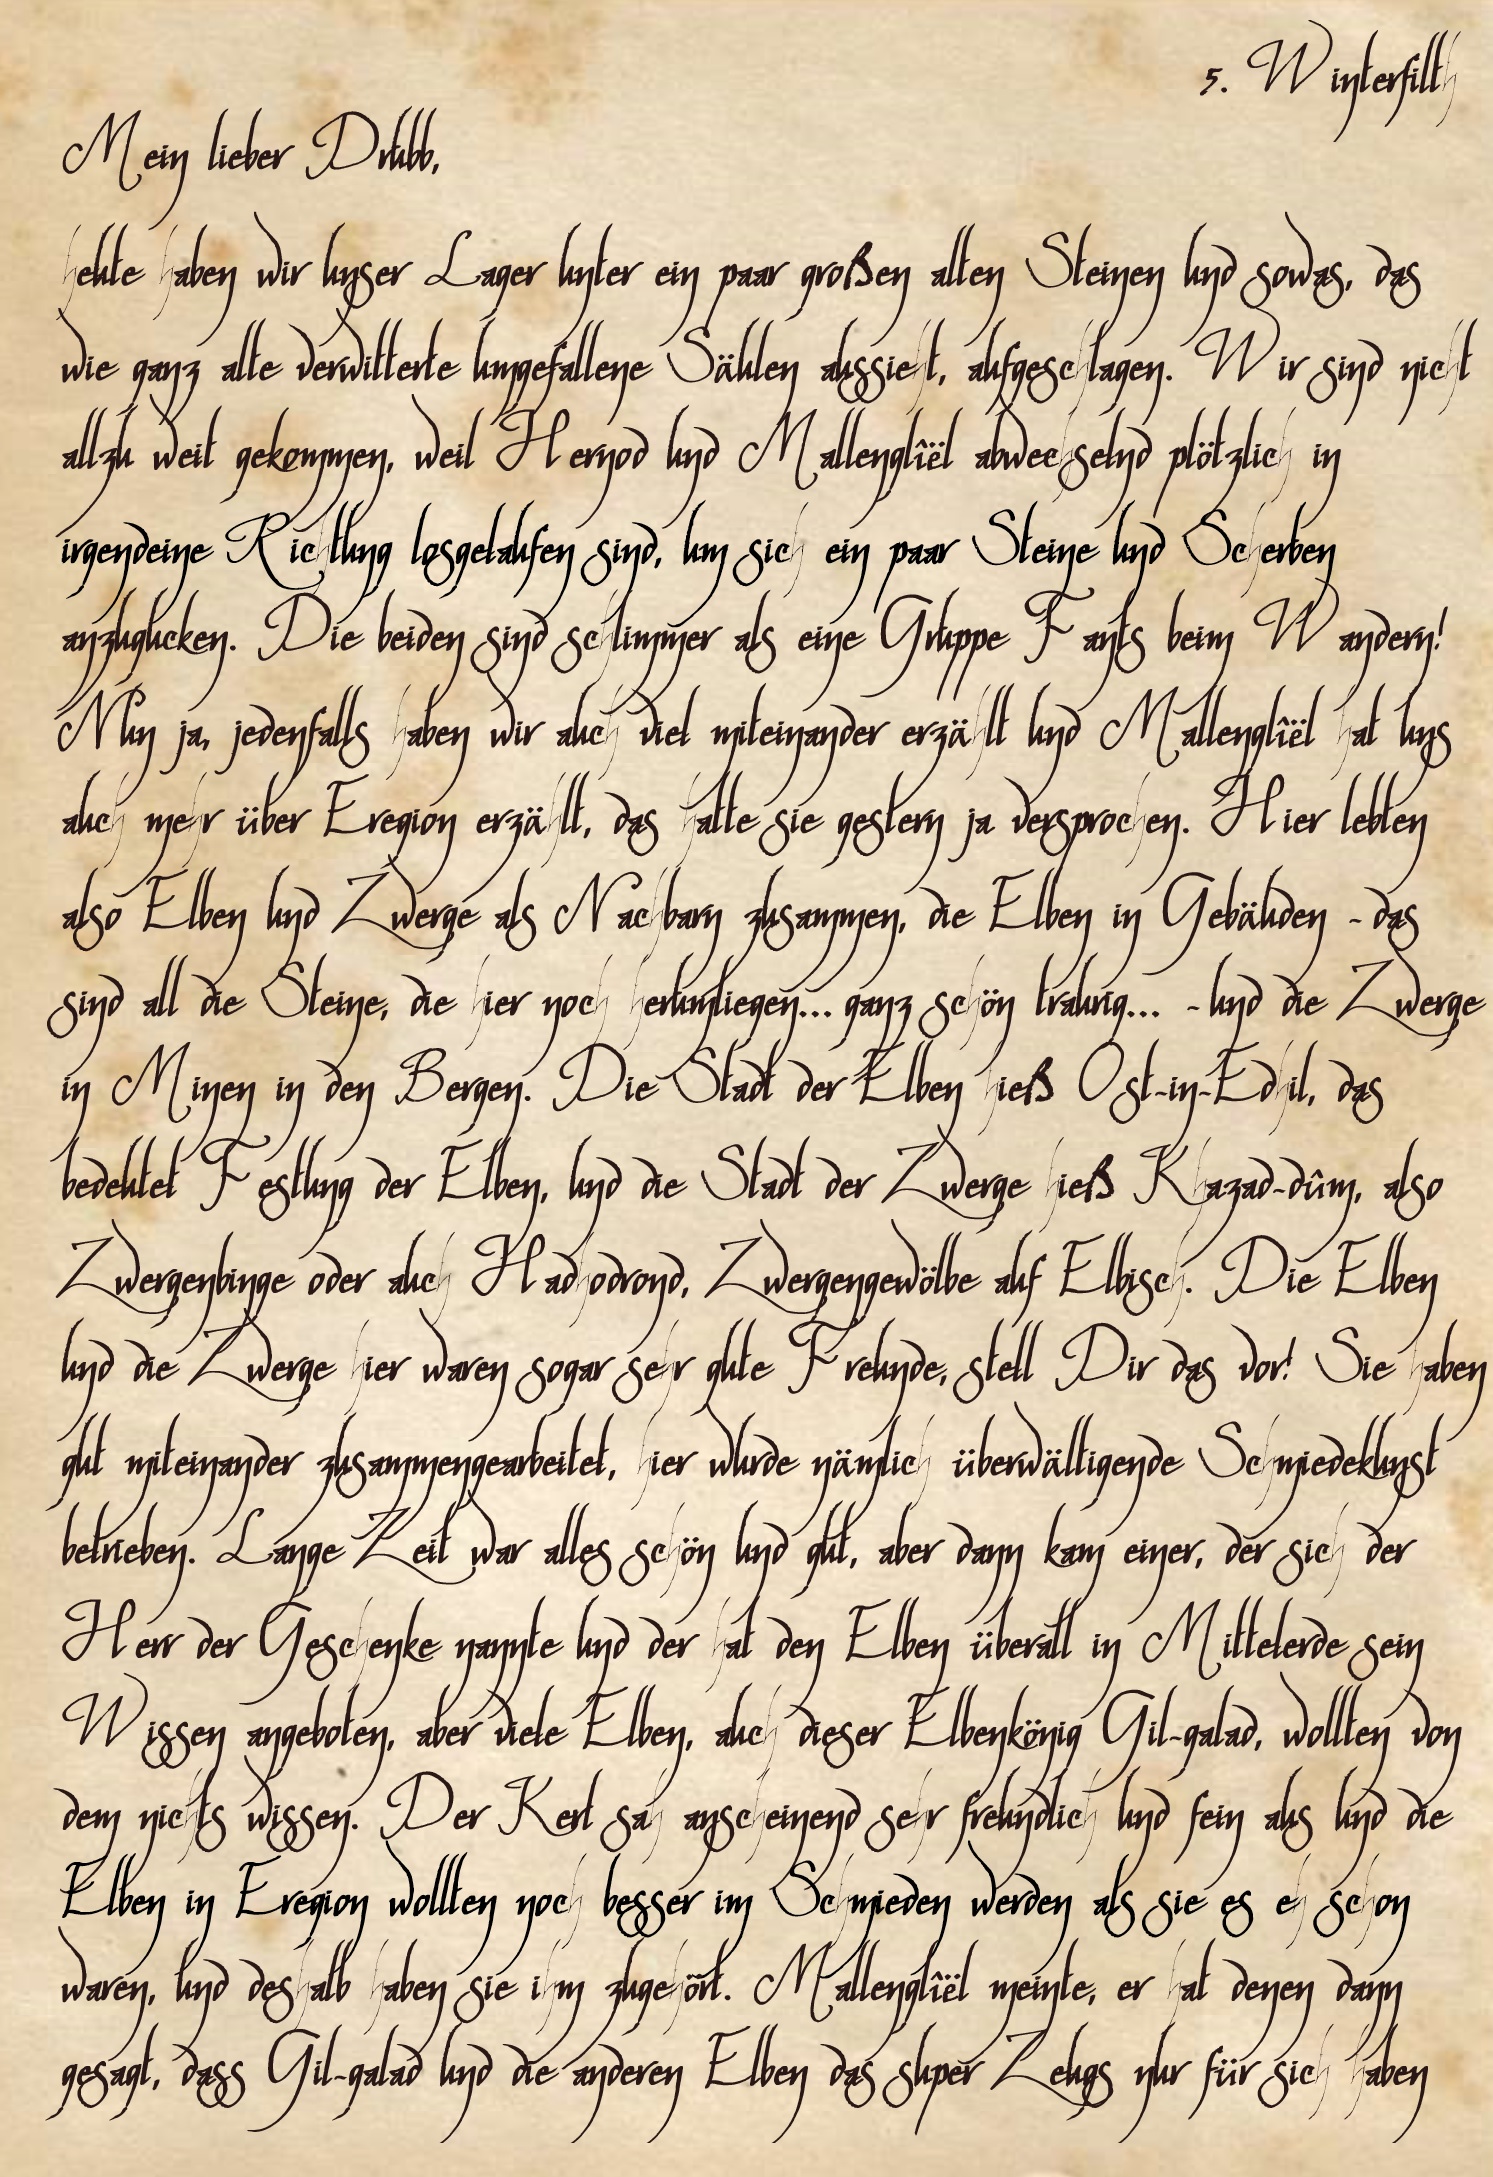 5. Winterfilth
Mein lieber Drubb,
heute haben wir unser Lager unter ein paar großen alten Steinen und sowas, das
wie ganz alte verwitterte umgefallene Säulen aussieht, aufgeschlagen. Wir sind nicht
allzu weit gekommen, weil Hernod und Mallenglîël abwechselnd plötzlich in
irgendeine Richtung losgelaufen sind, um sich ein paar Steine und Scherben
anzugucken. Die beiden sind schlimmer als eine Gruppe Fants beim Wandern!
Nun ja, jedenfalls haben wir auch viel miteinander erzählt und Mallenglîël hat uns
auch mehr über Eregion erzählt, das hatte sie gestern ja versprochen. Hier lebten
also Elben und Zwerge als Nachbarn zusammen, die Elben in Gebäuden - das
sind all die Steine, die hier noch herumliegen... ganz schön traurig... - und die Zwerge
in Minen in den Bergen. Die Stadt der Elben hieß Ost-in-Edhil, das
bedeutet Festung der Elben, und die Stadt der Zwerge hieß Khazad-dûm, also
Zwergenbinge oder auch Hadhodrond, Zwergengewölbe auf Elbisch. Die Elben
und die Zwerge hier waren sogar sehr gute Freunde, stell Dir das vor! Sie haben
gut miteinander zusammengearbeitet, hier wurde nämlich überwältigende Schmiedekunst
betrieben. Lange Zeit war alles schön und gut, aber dann kam einer, der sich der
Herr der Geschenke nannte und der hat den Elben überall in Mittelerde sein
Wissen angeboten, aber viele Elben, auch dieser Elbenkönig Gil-galad, wollten von
dem nichts wissen. Der Kerl sah anscheinend sehr freundlich und fein aus und die
Elben in Eregion wollten noch besser im Schmieden werden als sie es eh schon
waren, und deshalb haben sie ihm zugehört. Mallenglîël meinte, er hat denen dann
gesagt, dass Gil-galad und die anderen Elben das super Zeugs nur für sich haben